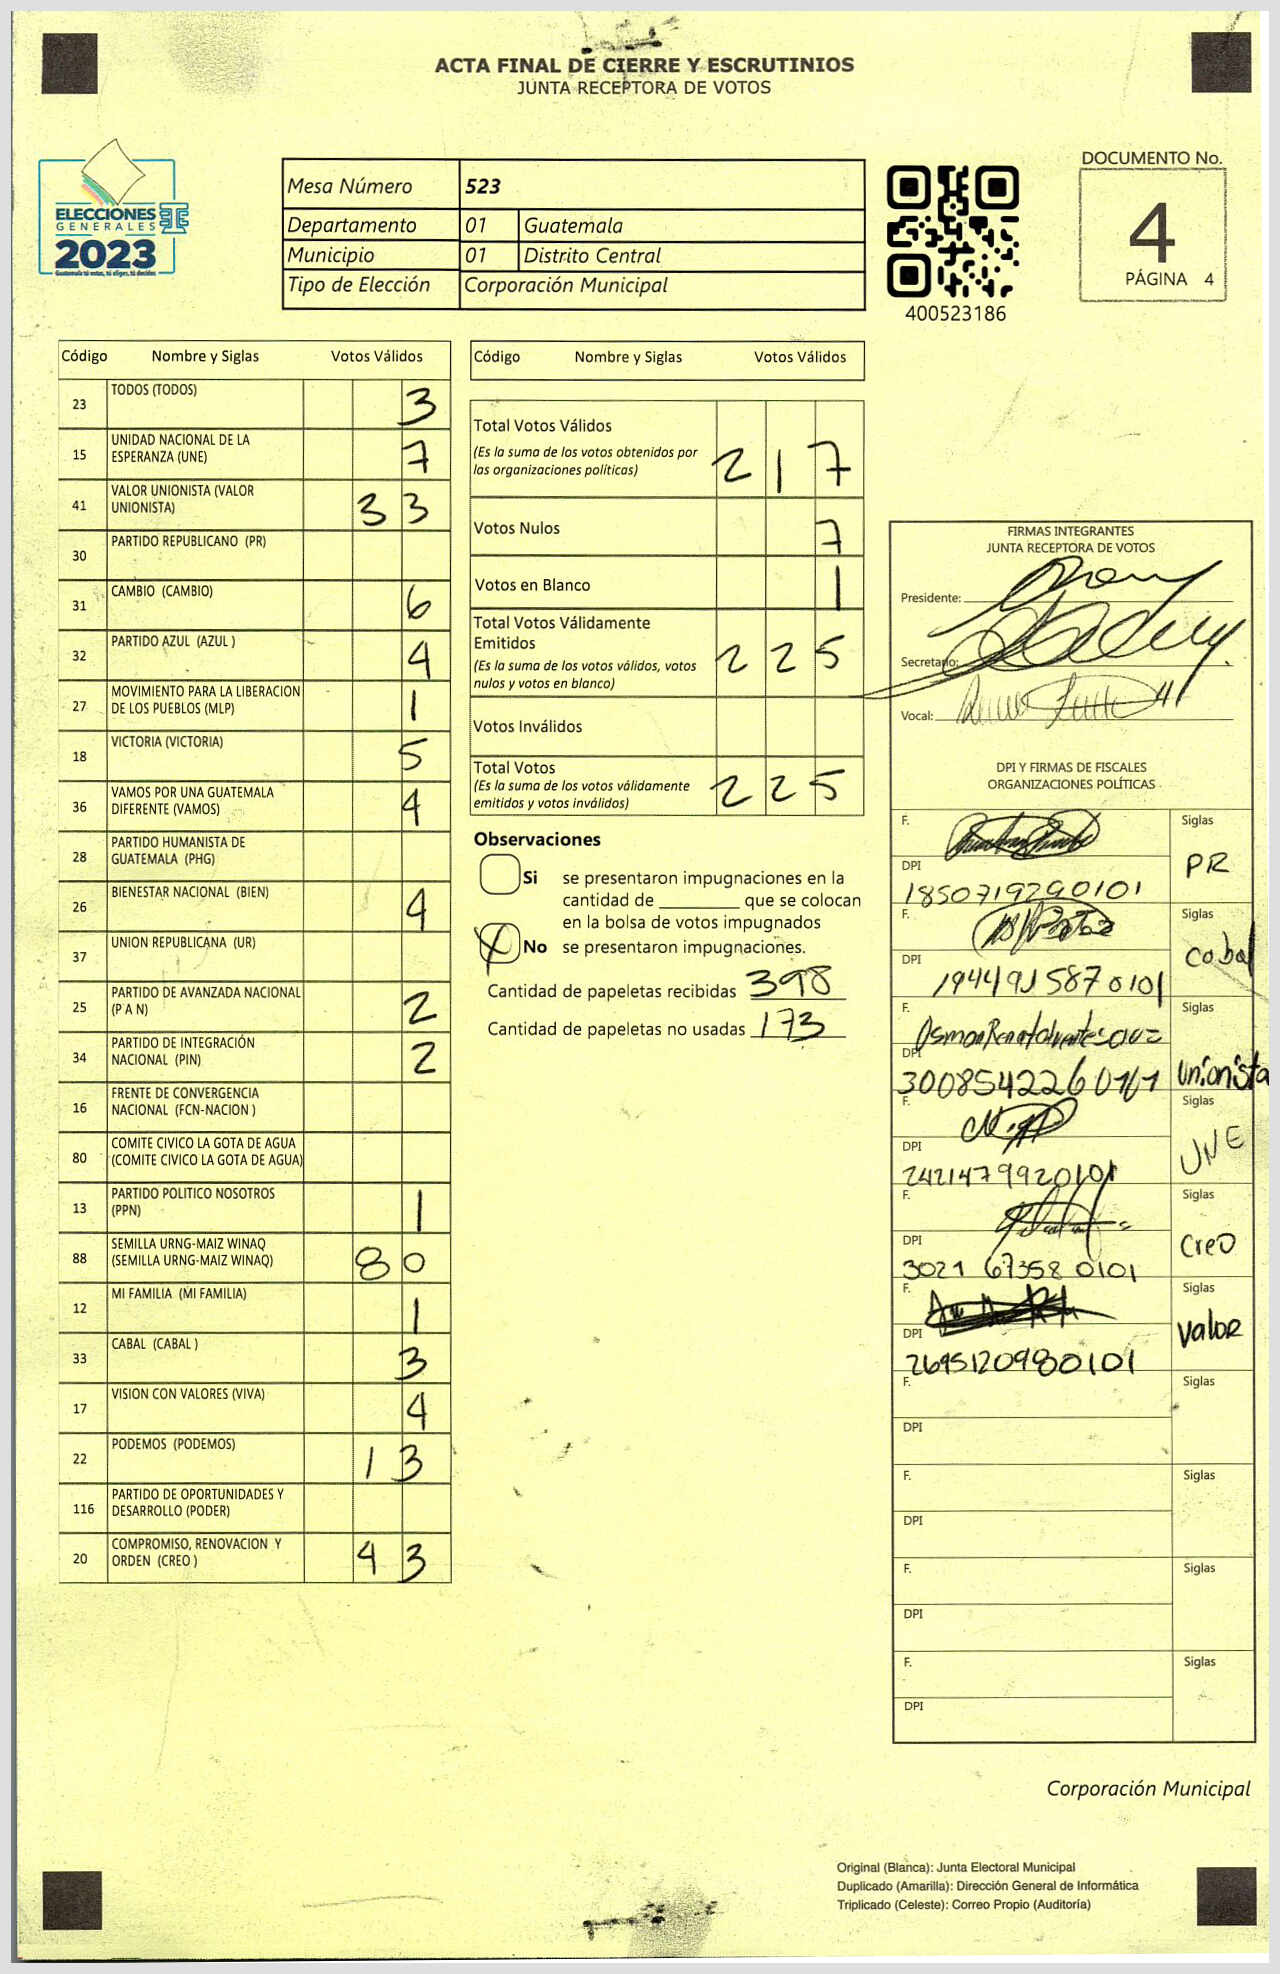 ACTA FINAL DE CIERRE Y ESCRUTINIOS
JUNTA RECEPTORA DE VOTOS
ELECCIONES
GENERALES
2023
Guatemala tú votas, tú eliges, tú decides
Mesa Número 523
Departamento 01 Guatemala
Municipio 01 Distrito Central
Tipo de Elección Corporación Municipal
400523186
DOCUMENTO No.
4
PÁGINA 4
Código Nombre y Siglas Votos Válidos
23 TODOS (TODOS) 3
15 UNIDAD NACIONAL DE LA
ESPERANZA (UNE) 7
41 VALOR UNIONISTA (VALOR
UNIONISTA) 33
30 PARTIDO REPUBLICANO (PR)
31 CAMBIO (CAMBIO) 6
32 PARTIDO AZUL (AZUL ) 4
27 MOVIMIENTO PARA LA LIBERACION
DE LOS PUEBLOS (MLP) 1
18 VICTORIA (VICTORIA) 5
36 VAMOS POR UNA GUATEMALA
DIFERENTE (VAMOS) 4
28 PARTIDO HUMANISTA DE
GUATEMALA (PHG)
26 BIENESTAR NACIONAL (BIEN) 4
37 UNION REPUBLICANA (UR)
25 PARTIDO DE AVANZADA NACIONAL
(P A N) 2
34 PARTIDO DE INTEGRACIÓN
NACIONAL (PIN) 2
16 FRENTE DE CONVERGENCIA
NACIONAL (FCN-NACION )
80 COMITE CIVICO LA GOTA DE AGUA
(COMITE CIVICO LA GOTA DE AGUA)
13 PARTIDO POLITICO NOSOTROS
(PPN) 1
88 SEMILLA URNG-MAIZ WINAQ
(SEMILLA URNG-MAIZ WINAQ) 80
12 MI FAMILIA (MI FAMILIA) 1
33 CABAL (CABAL ) 3
17 VISION CON VALORES (VIVA) 4
22 PODEMOS (PODEMOS) 13
116 PARTIDO DE OPORTUNIDADES Y
DESARROLLO (PODER)
20 COMPROMISO, RENOVACION Y
ORDEN (CREO ) 43
Código Nombre y Siglas Votos Válidos
Total Votos Válidos
(Es la suma de los votos obtenidos por
las organizaciones políticas) 217
Votos Nulos 7
Votos en Blanco 1
Total Votos Válidamente
Emitidos
(Es la suma de los votos válidos, votos
nulos y votos en blanco) 225
Votos Inválidos
Total Votos
(Es la suma de los votos válidamente
emitidos y votos inválidos) 225
Observaciones
Si se presentaron impugnaciones en la
cantidad de ________ que se colocan
en la bolsa de votos impugnados
X No se presentaron impugnaciones.
Cantidad de papeletas recibidas 398
Cantidad de papeletas no usadas 173
FIRMAS INTEGRANTES
JUNTA RECEPTORA DE VOTOS
Presidente:
Secretario:
Vocal:
DPI Y FIRMAS DE FISCALES
ORGANIZACIONES POLÍTICAS
F. Siglas
PR
DPI
1850719290101
F. Siglas
cabal
DPI
1944915870101
F. Siglas
Unionista
DPI
3008542260101
F. Siglas
UNE
DPI
2421479920101
F. Siglas
CreO
DPI
3021 67358 0101
F. Siglas
Valor
DPI
2695120980101
F. Siglas
DPI
F. Siglas
DPI
F. Siglas
DPI
F. Siglas
DPI
Corporación Municipal
Original (Blanca): Junta Electoral Municipal
Duplicado (Amarilla): Dirección General de Informática
Triplicado (Celeste): Correo Propio (Auditoría)